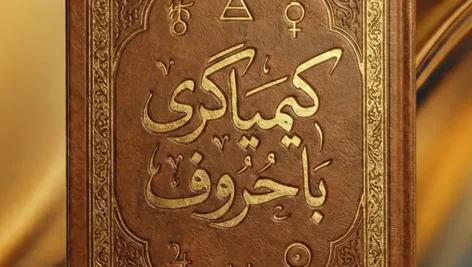 کیمیاگری
با حُروف